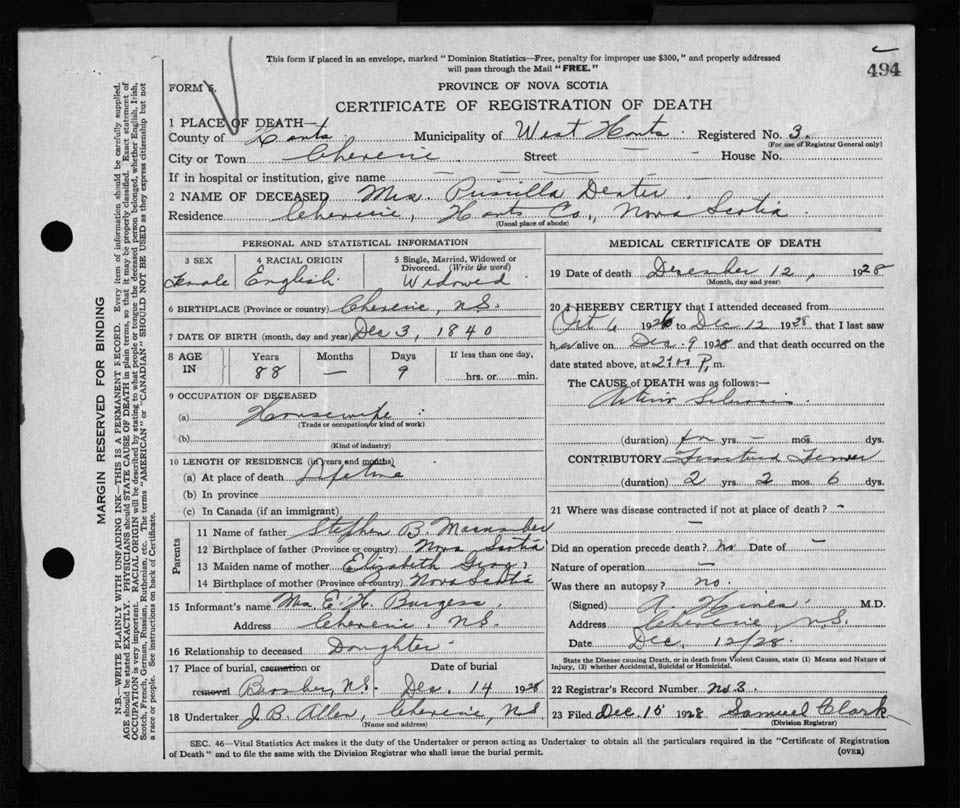 This form if placed in an envelope, marked "Dominion Statistics—Free, penalty for improper use $300," and properly addressed
will pass through the Mail "FREE."
494
FORM 6.
PROVINCE OF NOVA SCOTIA
CERTIFICATE OF REGISTRATION OF DEATH
1 PLACE OF DEATH—
County of Hants Municipality of West Hants Registered No. 3.
(For use of Registrar General only)
City or Town Cheverie Street — House No.
If in hospital or institution, give name — — — —
2 NAME OF DECEASED Mrs. Prusilla Dexter
Residence Cheverie, Hants Co., Nova Scotia
(Usual place of abode)
PERSONAL AND STATISTICAL INFORMATION
3 SEX 4 RACIAL ORIGIN 5 Single, Married, Widowed or
Divorced. (Write the word)
Female English Widowed
6 BIRTHPLACE (Province or country) Cheverie, N.S.
7 DATE OF BIRTH (month, day and year) Dec 3, 1840
8 AGE IN Years Months Days If less than one day,
88 — 9 hrs. or min.
9 OCCUPATION OF DECEASED
(a) Housewife
(Trade or occupation or kind of work)
(b)
(Kind of industry)
10 LENGTH OF RESIDENCE (in years and months)
(a) At place of death Lifetime
(b) In province
(c) In Canada (if an immigrant)
Parents
11 Name of father Stephen B. Macumber
12 Birthplace of father (Province or country) Nova Scotia
13 Maiden name of mother Elizabeth
14 Birthplace of mother (Province or Country) Nova Scotia
15 Informant's name Mrs E. H. Burgess
Address Cheverie N.S.
16 Relationship to deceased Daughter
17 Place of burial, cremation or Date of burial
removal N.S. Dec. 14 1928
18 Undertaker J. B. Allen, Cheverie, N.S
(Name and address)
MEDICAL CERTIFICATE OF DEATH
19 Date of death December 12, 1928
(Month, day and year)
20 I HEREBY CERTIFY that I attended deceased from
Oct 6 1926 to Dec 12 1928 that I last saw
her alive on Dec. 9 1928 and that death occurred on the
date stated above, at P. m.
The CAUSE of DEATH was as follows:—
(duration) yrs. — mos. dys.
CONTRIBUTORY Fractured Femur
(duration) 2 yrs. 2 mos. 6 dys.
21 Where was disease contracted if not at place of death? -
Did an operation precede death? no Date of —
Nature of operation —
Was there an autopsy? no.
(Signed) A. M.D.
Address Cheverie, N.S.
Date Dec. 12/28.
State the Disease causing Death, or in death from Violent Causes, state (1) Means and Nature of
Injury, (2) whether Accidental, Suicidal or Homicidal.
22 Registrar's Record Number No 3.
23 Filed Dec. 1928 Samuel Clark
(Division Registrar)
SEC. 46—Vital Statistics Act makes it the duty of the Undertaker or person acting as Undertaker to obtain all the particulars required in the "Certificate of Registration
of Death" and to file the same with the Division Registrar who shall issue the burial permit. (OVER)
MARGIN RESERVED FOR BINDING
N.B.—WRITE PLAINLY WITH UNFADING INK—THIS IS A PERMANENT RECORD. Every item of information should be carefully supplied.
AGE should be stated EXACTLY. PHYSICIANS should STATE CAUSE OF DEATH in plain terms, so that it may be properly classified. Exact statement of
OCCUPATION is very important. RACIAL ORIGIN will be described by stating to what people or tongue the deceased person belonged, whether English, Irish,
Scotch, French, German, Russian, Ruthenian, etc. The terms "AMERICAN" or "CANADIAN" SHOULD NOT BE USED as they express citizenship but not
a race or people. See instructions on back of Certificate.